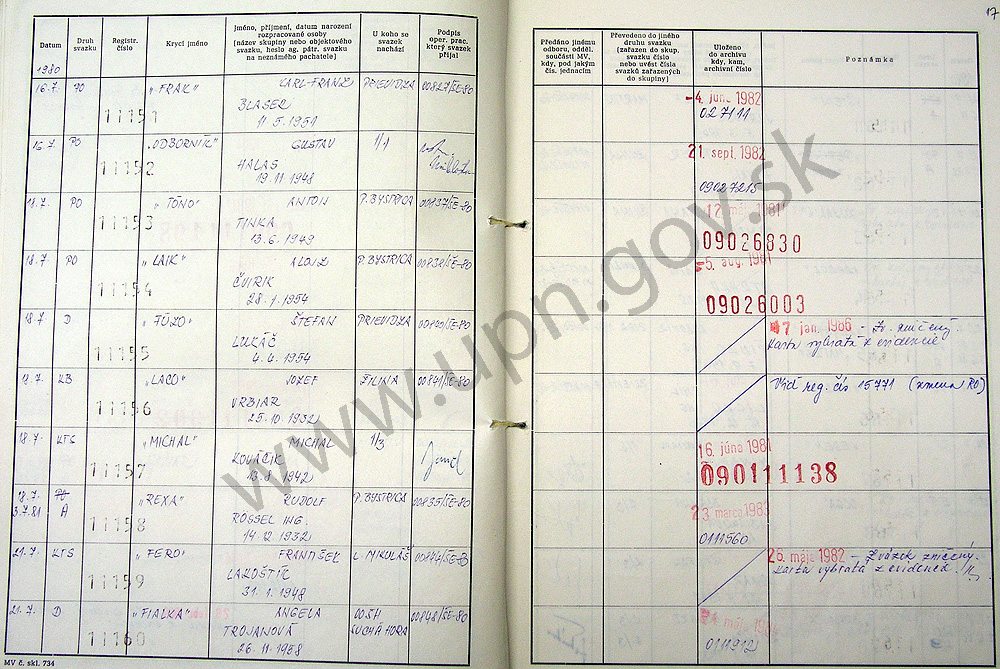 17
Datum
Druh svazku
Registr. číslo
Krycí jméno
Jméno, příjmení, datum narození rozpracované osoby (název skupiny nebo objektového svazku, heslo ag. pátr. svazku na neznámého pachatele)
U koho se svazek nachází
Podpis oper. prac. který svazek přijal
Předáno jinému odboru, odděl. součásti MV, kdy, pod jakým čís. jednacím
Převedeno do jiného druhu svazku (zařazen do skup. svazku číslo nebo uvést čísla svazků zařazených do skupiny)
Uloženo do archivu kdy, kam, archivní číslo
Poznámka
1980
16.7. PO 11151 „FRAK" KARL-FRANZ PRIEVIDZA 00827/ŠE-80 -4. júna 1982
BLASER 027111
11.5.1951
16.7. PO 11152 „ODBORNÍK" GUSTAV 1/1 21. sept. 1982
HALAS
19.11.1948 09027215
18.7. PO 11153 „TÓNO" ANTON P. BYSTRICA 00837/ŠE-80 12. 1981
TINKA 09026830
13.6.1949
18.7. PO 11154 „LAIK" ALOJZ P. BYSTRICA 00838/ŠE-80 -5. aug. 1981
ČVIRIK
28.1.1954 09026003
18.7. D 11155 „FÚZO" ŠTEFAN PRIEVIDZA 00840/ŠE-80 17. jan. 1986 - Zv. zničený
LUKÁČ karta vybratá z evidencie
4.4.1954
18.7. KB 11156 „LACO" JOZEF ŽILINA 00841/ŠE-80 Viď reg. čís 15771 (zmena RO)
VRBIAR
25.10.1932
18.7. KTS 11157 „MICHAL" MICHAL 1/3 16. júna 1981
KOVÁČIK 090111138
13.8.1942
18.7. PO 11158 „REXA" RUDOLF P. BYSTRICA 00835/ŠE-80 23. marca 1983
3.7.81 A RÖSSEL ING.
14.12.1932 0111560
21.7. KTS 11159 „FERO" FRANTIŠEK L. MIKULÁŠ 26. mája 1982 - Zväzok zničený.
LAKOŠTÍC karta vybratá z evidenc.
31.1.1948
21.7. D 11160 „FIALKA" ANGELA OO SH 00848/ŠE-80
TROJANOVÁ SUCHÁ HORA 0111912
26.11.1958
MV č. skl. 734
www.upn.gov.sk